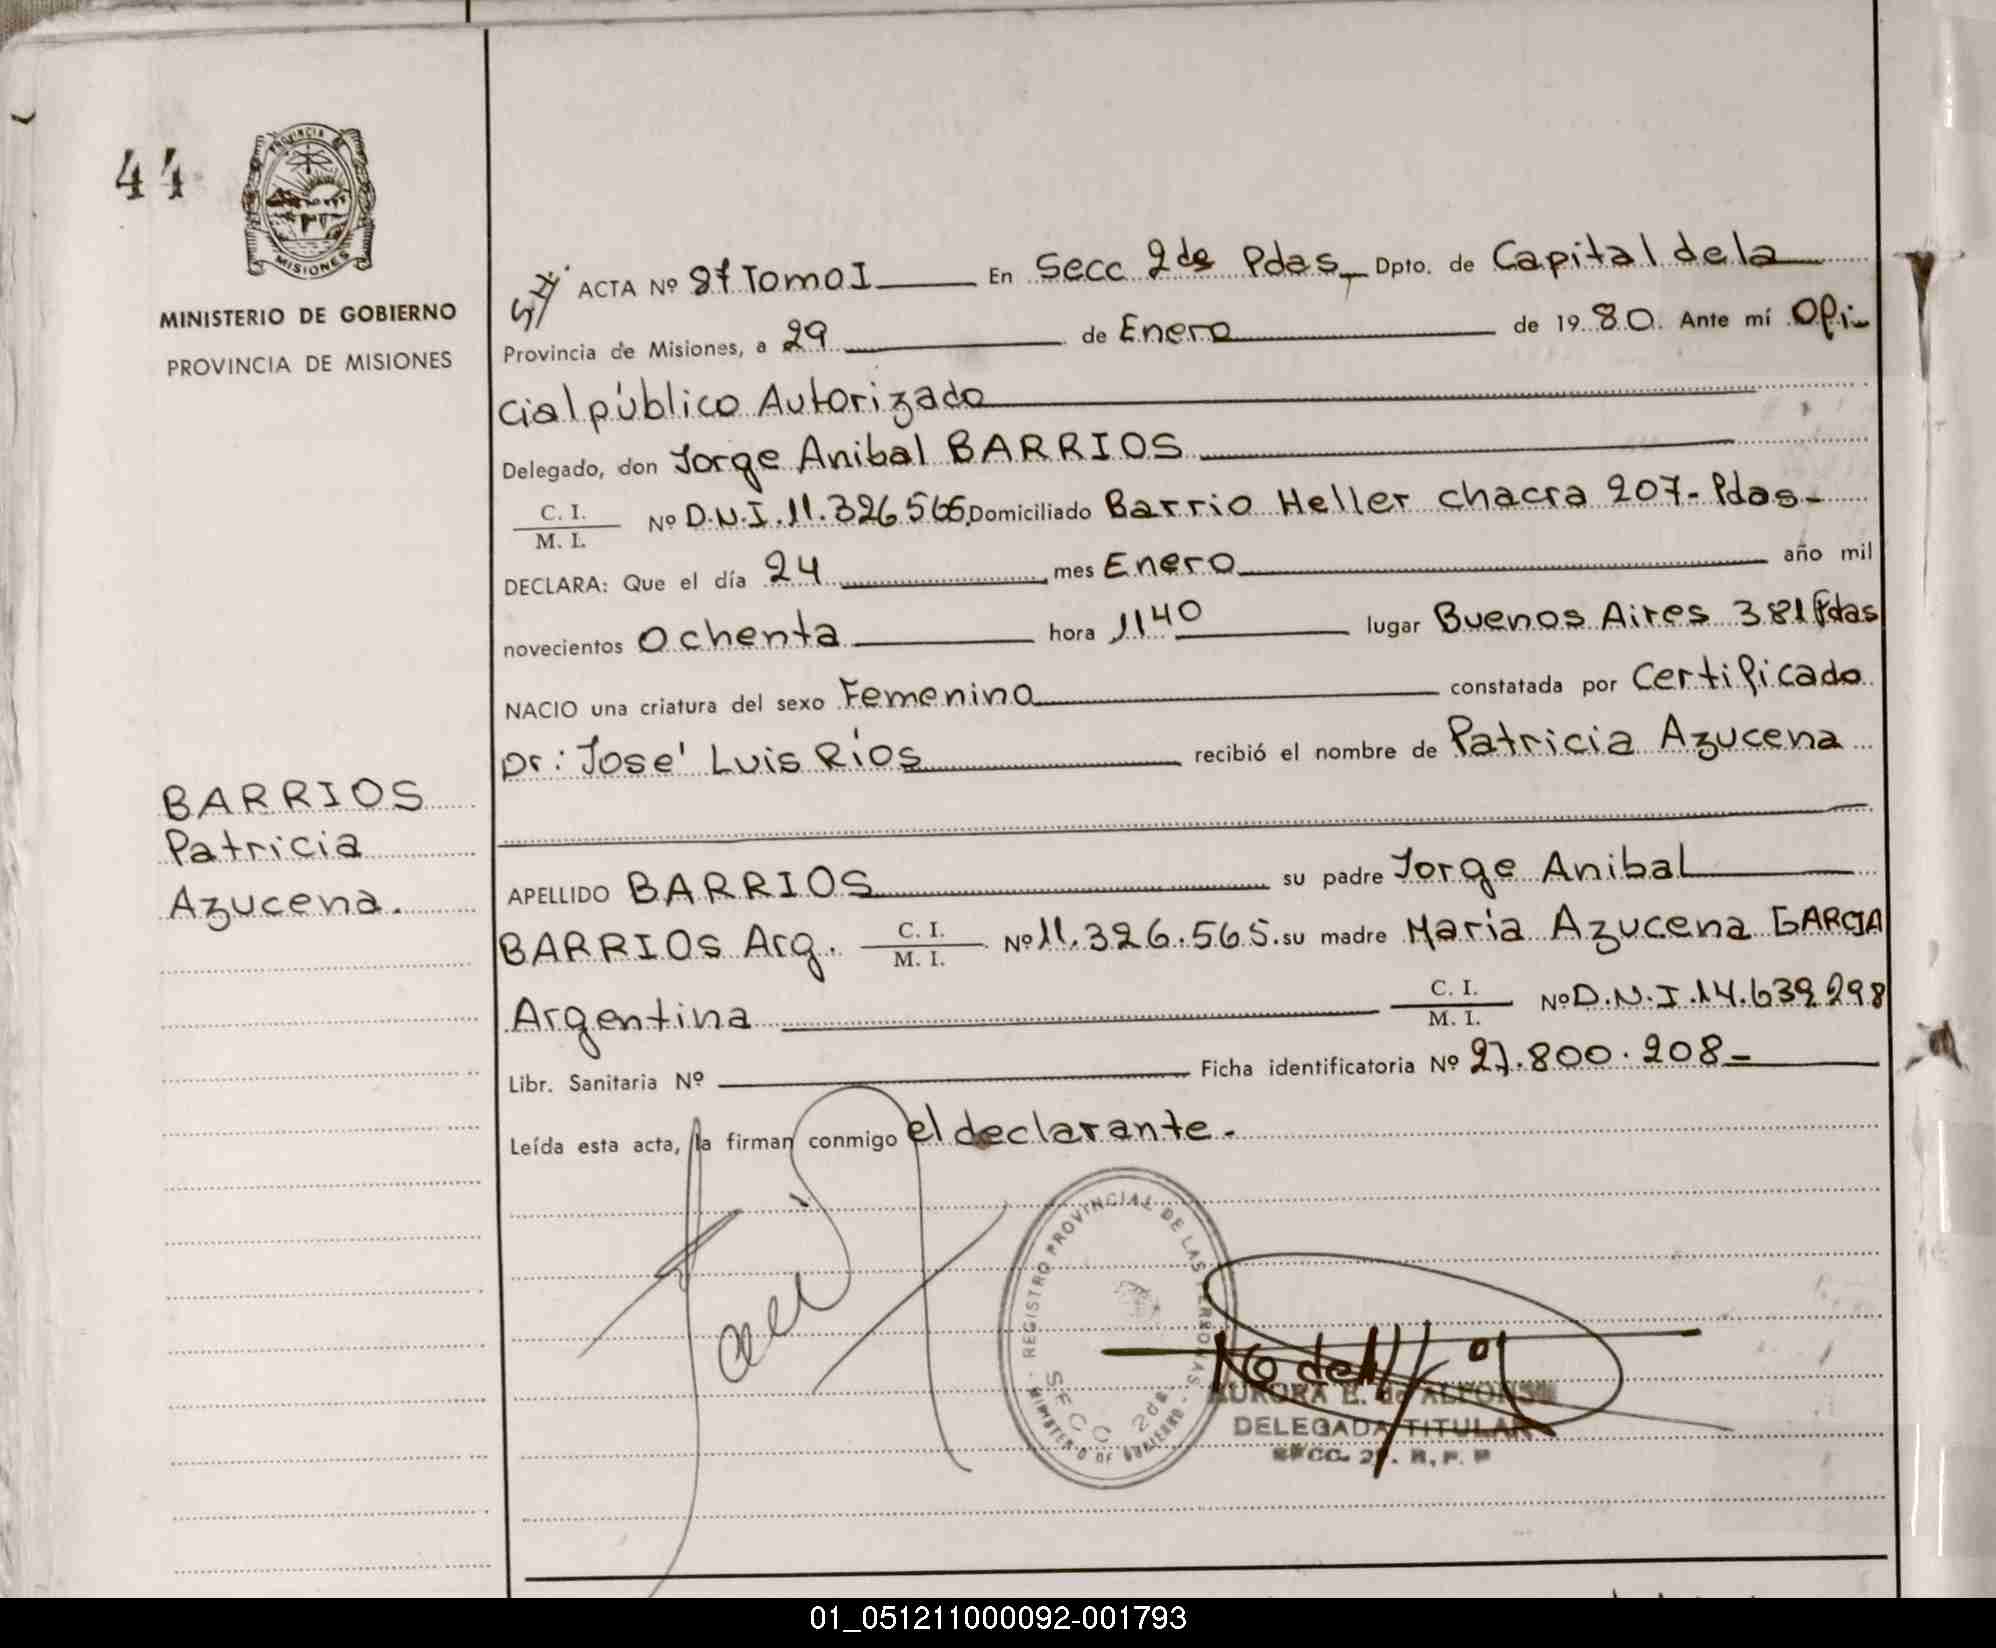 44
PROVINCIA
MISIONES
MINISTERIO DE GOBIERNO
PROVINCIA DE MISIONES
ACTA Nº 87 Tomo I En Secc 2da Pdas Dpto. de Capital de la
Provincia de Misiones, a 29 de Enero de 1980. Ante mí Ofi-
cial público Autorizado
Delegado, don Jorge Anibal BARRIOS
C. I.
M. I. Nº D.N.I. 11.326.565 Domiciliado Barrio Heller chacra 207- Pdas-
DECLARA: Que el día 24 mes Enero año mil
novecientos Ochenta hora 11 40 lugar Buenos Aires 381 Pdas
NACIO una criatura del sexo Femenino constatada por Certificado
Dr: José Luis Ríos recibió el nombre de Patricia Azucena
BARRIOS
Patricia
Azucena.
APELLIDO BARRIOS su padre Jorge Anibal
BARRIOS Arg. C. I. M. I. Nº 11.326.565. su madre Maria Azucena GARCIA
Argentina C. I. M. I. Nº D.N.I. 14.639.298
Libr. Sanitaria Nº Ficha identificatoria Nº 27.800.208-
Leída esta acta, la firman conmigo el declarante.
REGISTRO PROVINCIAL DE LAS PERSONAS
MINISTERIO DE GOBIERNO
SECC 2da
AURORA E. de ALFONSO
DELEGADA TITULAR
SECC. 2ª. R. P. P
01_051211000092-001793